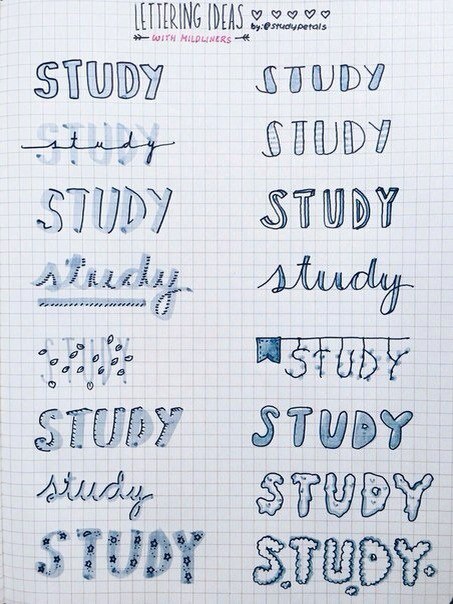 LETTERING IDEAS
WITH MILDLINERS
by:@studypetals
STUDY
STUDY
study
STUDY
STUDY
STUDY
study
study
STUDY
STUDY
STUDY
STUDY
study
STUDY
STUDY
STUDY